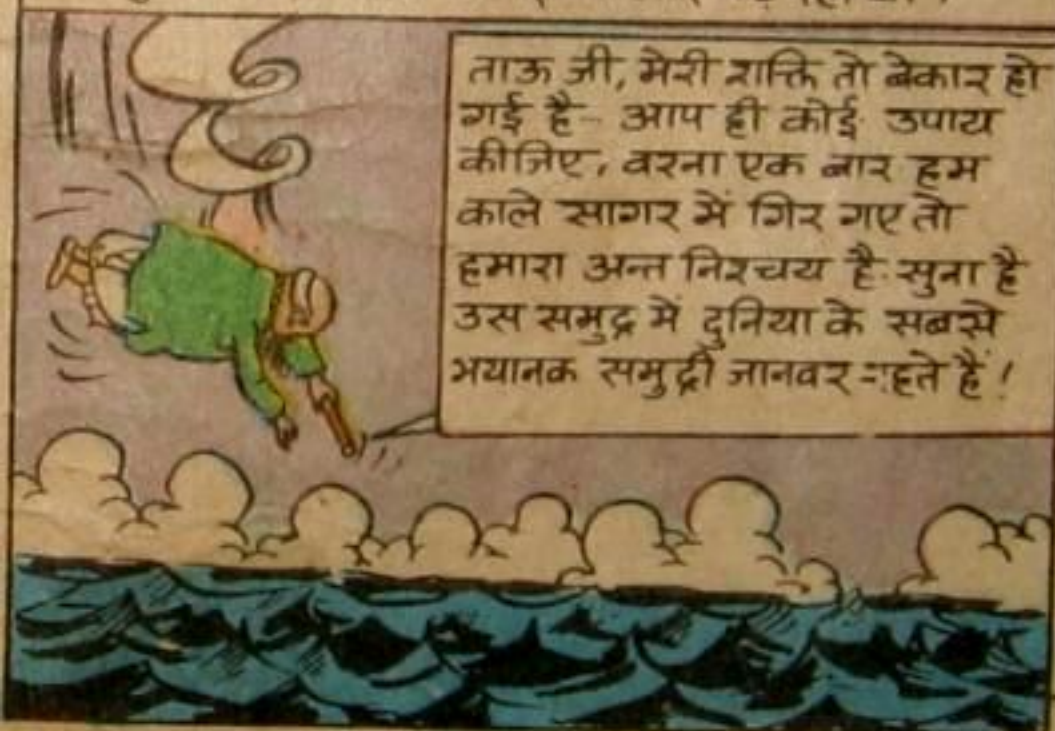 ताऊ जी, मेरी शक्ति तो बेकार हो
गई है- आप ही कोई उपाय
कीजिए, वरना एक बार हम
काले सागर में गिर गए तो
हमारा अन्त निश्चय है. सुना है
उस समुद्र में दुनिया के सबसे
भयानक समुद्री जानवर रहते हैं!